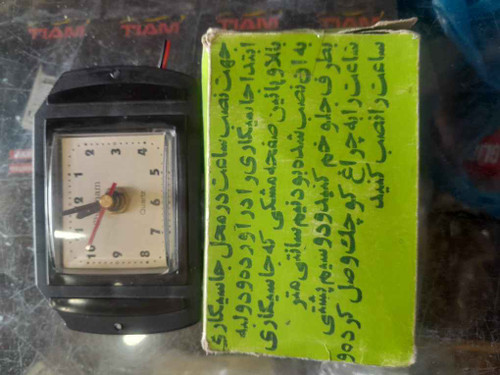 TIAM
TIAM
TIAM
Quartz
1 2 3 4 8 9 10
جهت نصب ساعت در محل جاسیگاری
ابتدا جاسیگاری را در آورده و دو لبه
بالا و پائین صفحه مشکی که جاسیگاری
به آن نصب شده بود نیم سانتی متر
بطرف جلو خم کنید و دو سیم پشتی
ساعت را به چراغ کوچک وصل کرده و
ساعت را نصب کنید